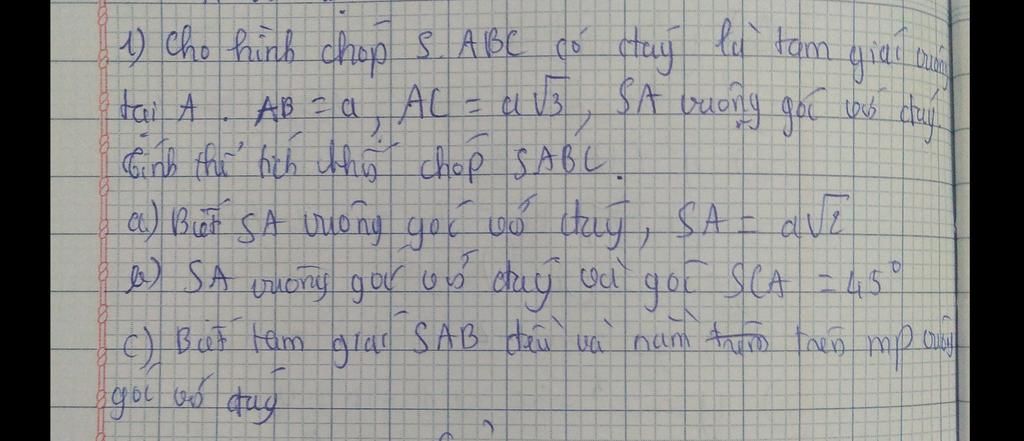 1) Cho hình chóp S.ABC có đáy là tam giác vuông
tại A. AB = a, AC = a√3, SA vuông góc với đáy.
Tính thể tích khối chóp SABC.
a) Biết SA vuông góc với đáy, SA = a√2
b) SA vuông góc với đáy và góc SCA = 45°
c) Biết tam giác SAB đều và nằm trên mp vuông
góc với đáy